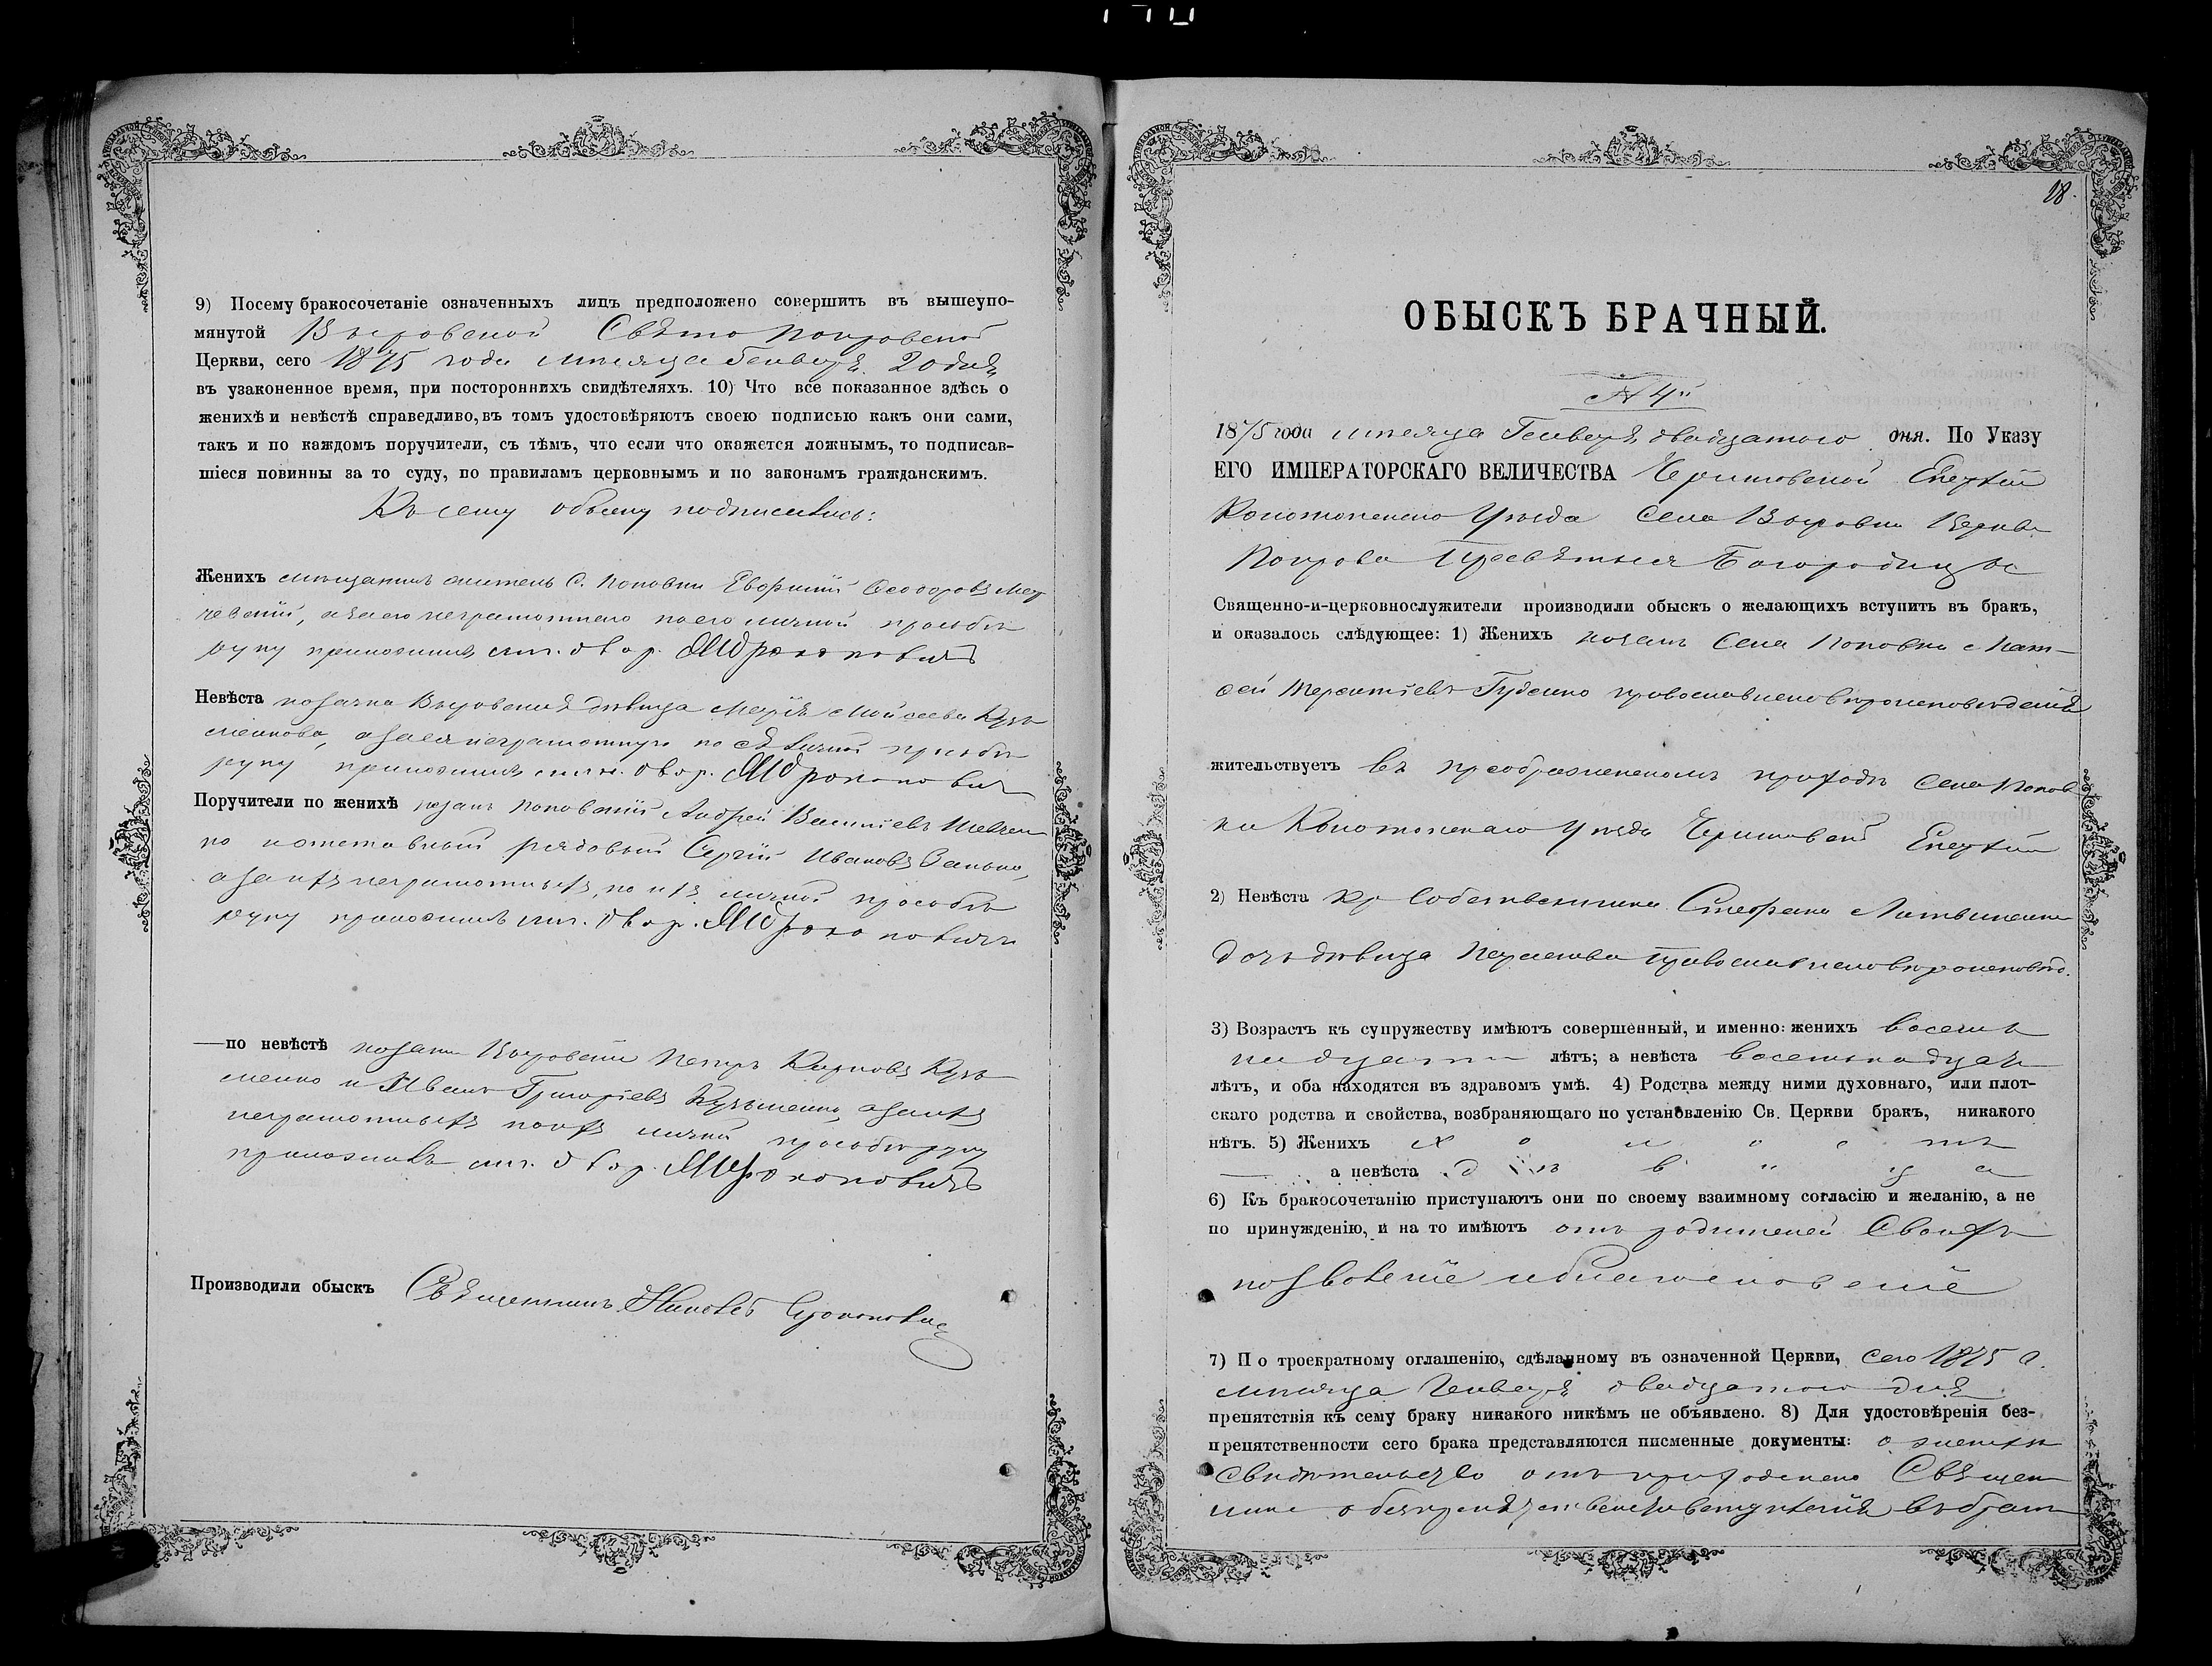 9) Посему бракосочетаніе означенныхъ лицъ предположено совершить въ вышеупо-
мянутой Выровской Свято Покровской
Церкви, сего 1875 года мѣсяца Генваря 20 дня
въ узаконенное время, при постороннихъ свидѣтеляхъ. 10) Что все показанное здѣсь о
женихѣ и невѣстѣ справедливо, въ томъ удостовѣряютъ своею подписью какъ они сами,
такъ и по каждомъ поручители, съ тѣмъ, что если что окажется ложнымъ, то подписав-
шіеся повинны за то суду, по правиламъ церковнымъ и по законамъ гражданскимъ.
Къ сему обыску подписались:
Женихъ мѣщанинъ житель С. Поповки Евфимій Феодоровъ
а за его неграмотнаго по его личной прозьбѣ
руку приложилъ двор. Прокоповичъ
Невѣста козачка Выровская дѣвица Марія Моисеева Кузь
менкова, а за ея неграмотную по ея личной прозьбѣ
руку приложилъ двор. Прокопович
Поручители по женихѣ козакъ Поповскій Андрей Васильевъ Шевчен
ко и отставный рядовый Сергій Ивановъ Занько,
а за ихъ неграмотныхъ, по ихъ личной прозьбѣ
руку приложилъ двор. Прокоповичъ
—по невѣстѣ козаки Выровскіе Петръ Карповъ Кузь
менко и Иванъ Григоріевъ Кузьменко, а за ихъ
неграмотныхъ по ихъ личной прозьбѣ руку
приложилъ двор. Прокоповичъ
Производили обыскъ Священникъ Яковъ Прокоповичъ
18.
ОБЫСКЪ БРАЧНЫЙ.
№ 4й
1875 года мѣсяца Генваря двадцатого дня. По Указу
ЕГО ИМПЕРАТОРСКАГО ВЕЛИЧЕСТВА Черниговской Епархіи
Конотопскаго Уѣзда Села Выровки Церкви
Покрова Пресвятыя Богородицы
Священно-и-церковнослужители производили обыскъ о желающихъ вступить въ бракъ,
и оказалось слѣдующее: 1) Женихъ козакъ Села Поповки Мат-
фей Терентіевъ Гуденко православнаго вѣроисповѣданія
жительствуетъ въ преображенскомъ приходѣ Села Попов
ки Конотопскаго Уѣзда Черниговской Епархіи
2) Невѣста Кр Собственника Стефана Литвиненка
дочь дѣвица православнаго вѣроисповѣд.
3) Возрастъ къ супружеству имѣютъ совершенный, и именно: женихъ восемь
надцать лѣтъ; а невѣста восемьнадцать
лѣтъ, и оба находятся въ здравомъ умѣ. 4) Родства между ними духовнаго, или плот-
скаго родства и свойства, возбраняющаго по установленію Св. Церкви бракъ, никакого
нѣтъ. 5) Женихъ х о л о с тъ
а невѣста д ѣ в и ц а
6) Къ бракосочетанію приступаютъ они по своему взаимному согласію и желанію, а не
по принужденію, и на то имѣютъ отъ родителей Своихъ
позволеніе и благословеніе
7) По троекратному оглашенію, сдѣланному въ означенной Церкви, сего 1875 г.
мѣсяца Генваря двадцатого дня
препятствія къ сему браку никакого никѣмъ не объявлено. 8) Для удостовѣренія без-
препятственности сего брака представляются писменные документы: о женихѣ
свидѣтельство отъ приходскаго Священ
ника о безпрепятственомъ вступленіи въ бракъ